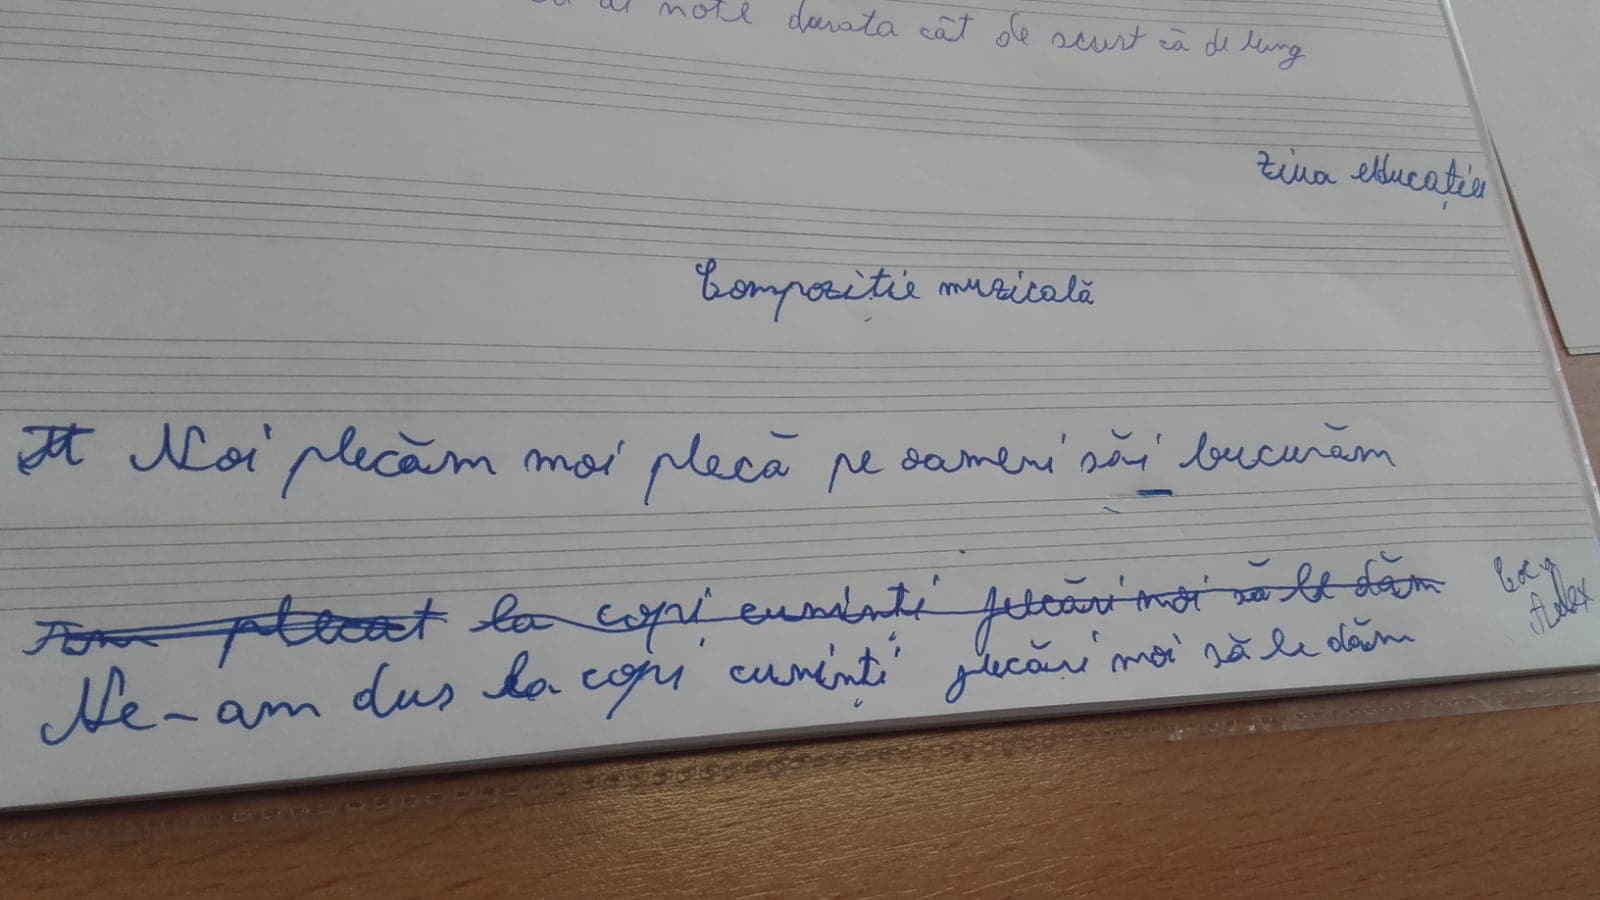 note durata cât de scurt că de lung
Ziua educației
Compoziție muzicală
Noi plecăm moi plecă pe oameni săi bucurăm
plecat la copi cuminti plecări moi să le dăm
Alex
Ne-am dus la copi cuminți plecări moi să le dăm